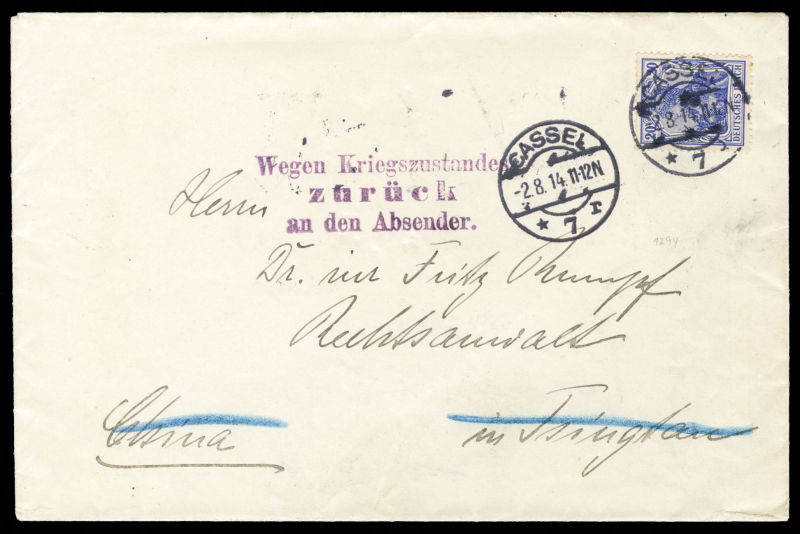 20
DEUTSCHES REICH
CASSEL
2.8.14.11-12N
* 7
CASSEL
-2.8.14.11-12N
* 7 r
Wegen Kriegszustandes
zurück
an den Absender.
Herrn
Dr. iur Fritz Rumpf
Rechtsanwalt
China
in Tsingtau
1294